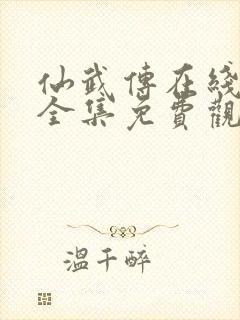 仙武傳在綫
全集免費觀
溫千醉